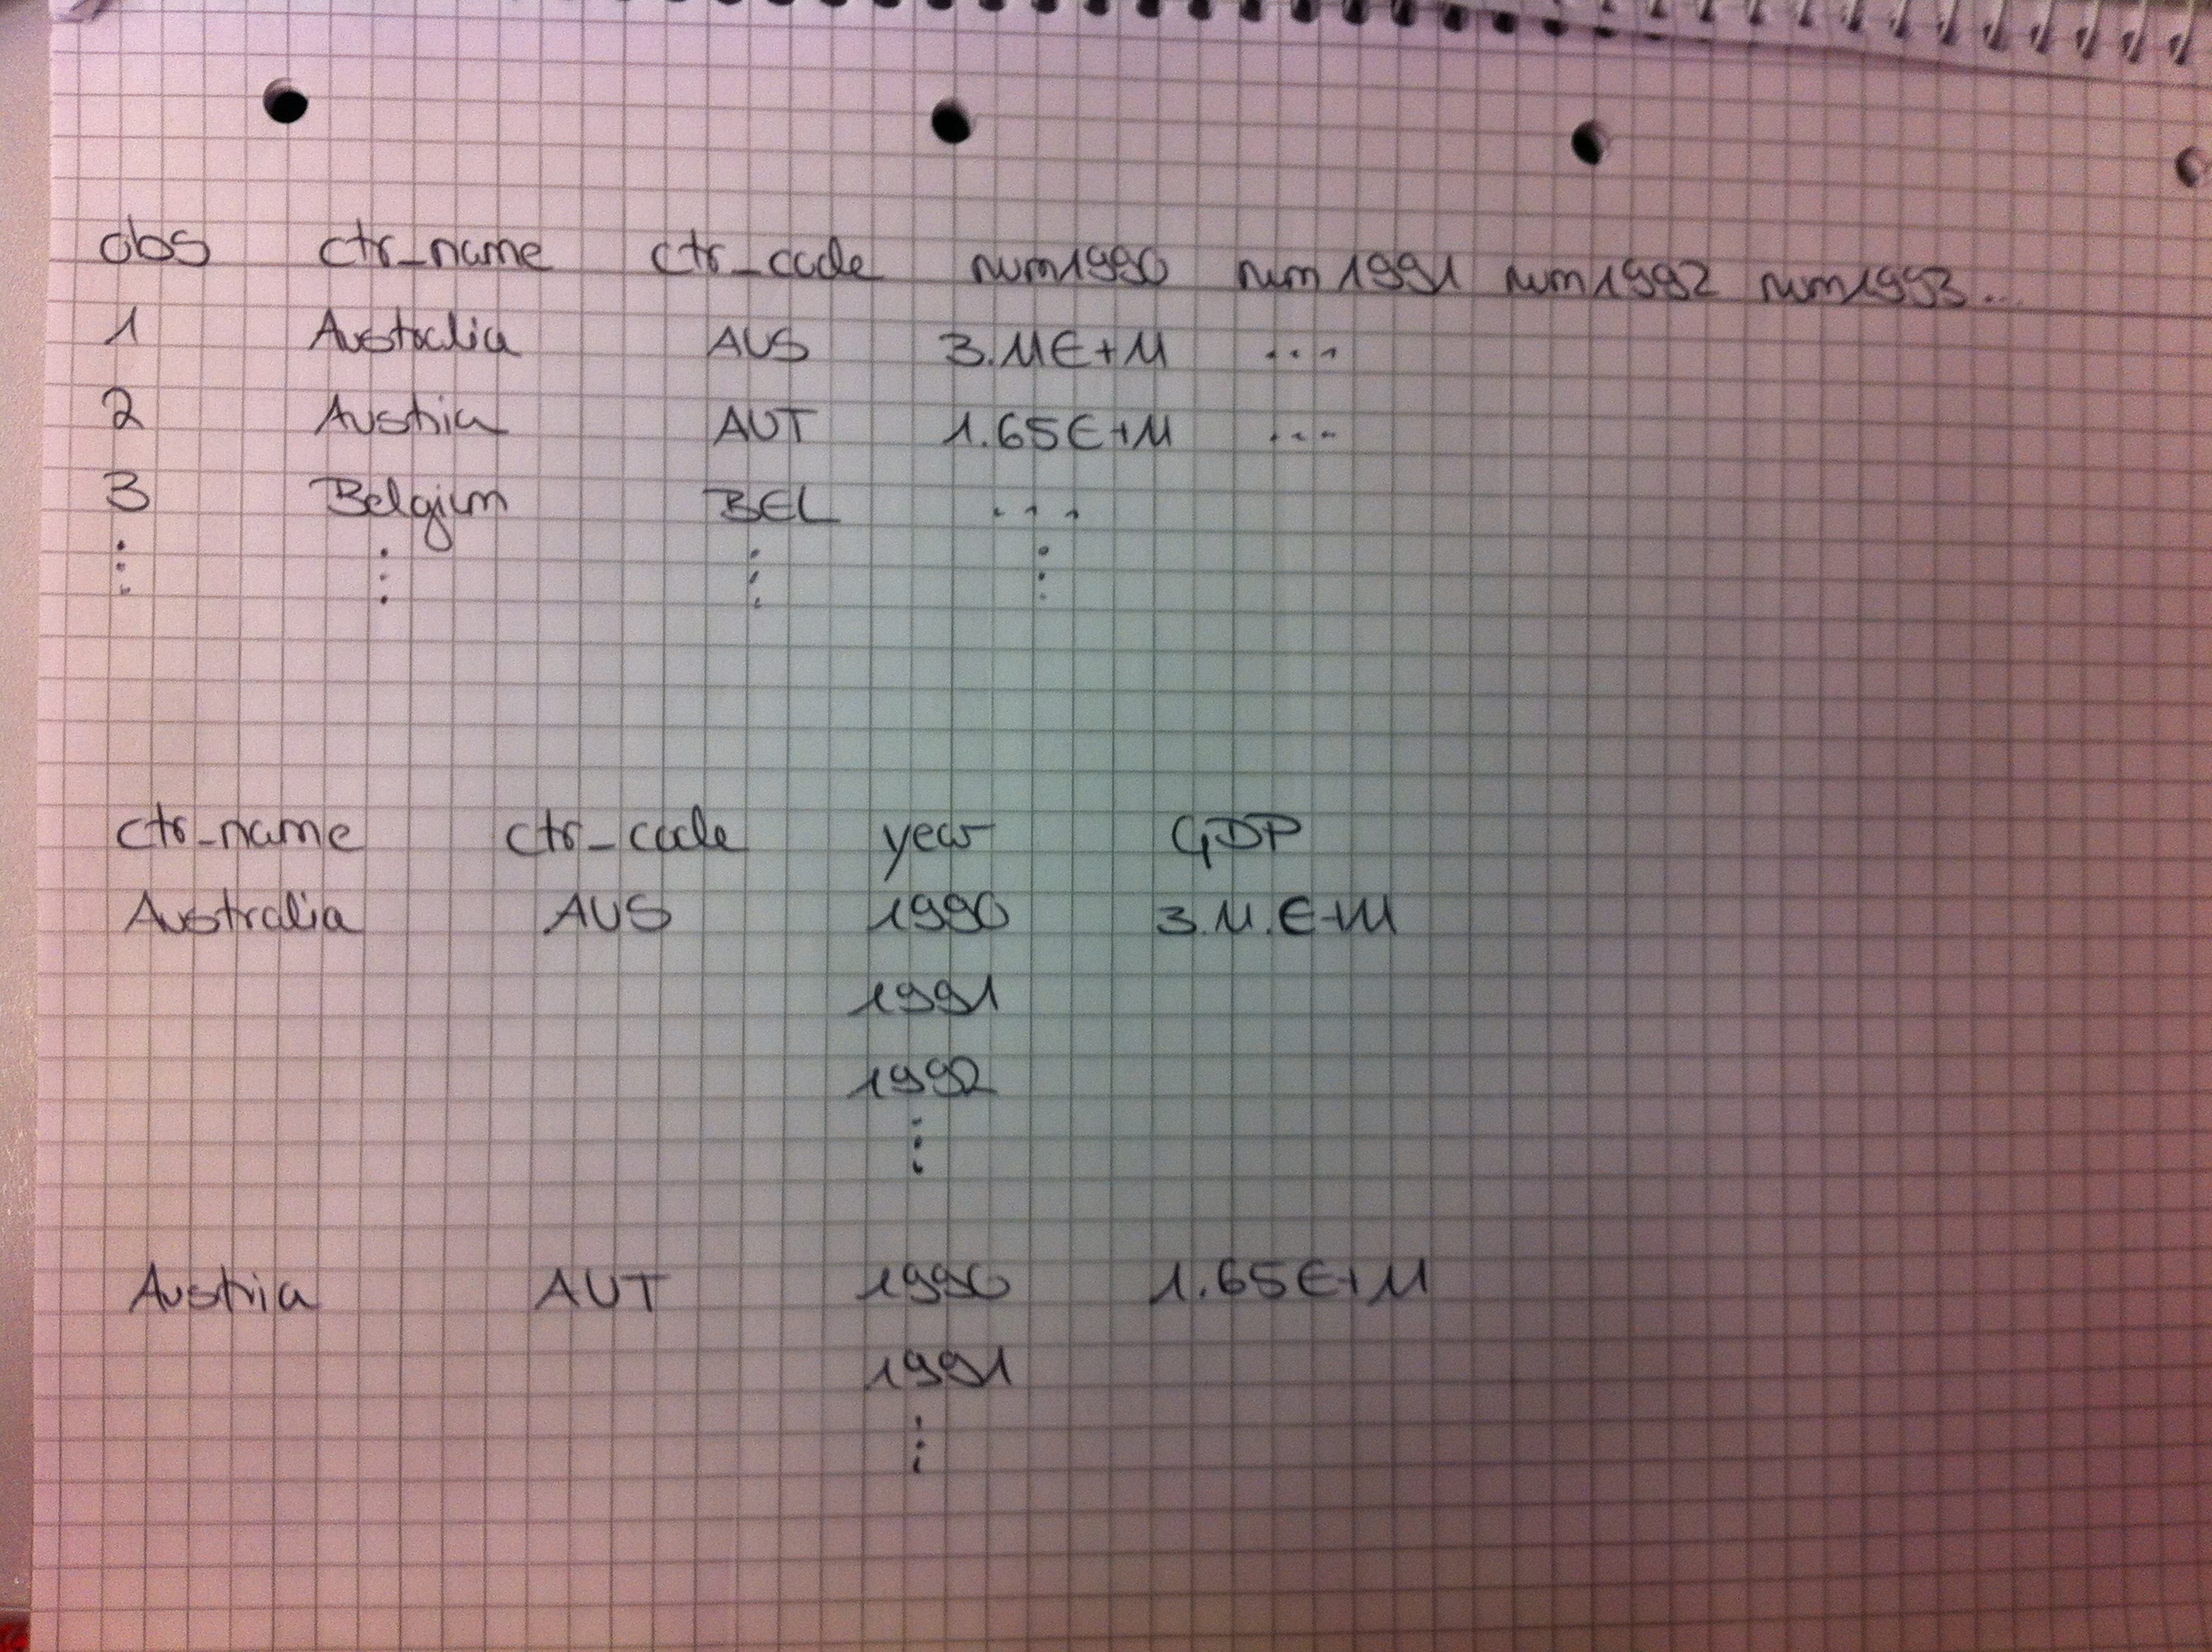 obs ctr_name ctr_code num1990 num1991 num1992 num1993...
1 Australia AUS 3.11E+11 ...
2 Austria AUT 1.65E+11 ...
3 Belgium BEL ...
ctr_name ctr_code year GDP
Australia AUS 1990 3.11.E+11
1991
1992
Austria AUT 1990 1.65E+11
1991